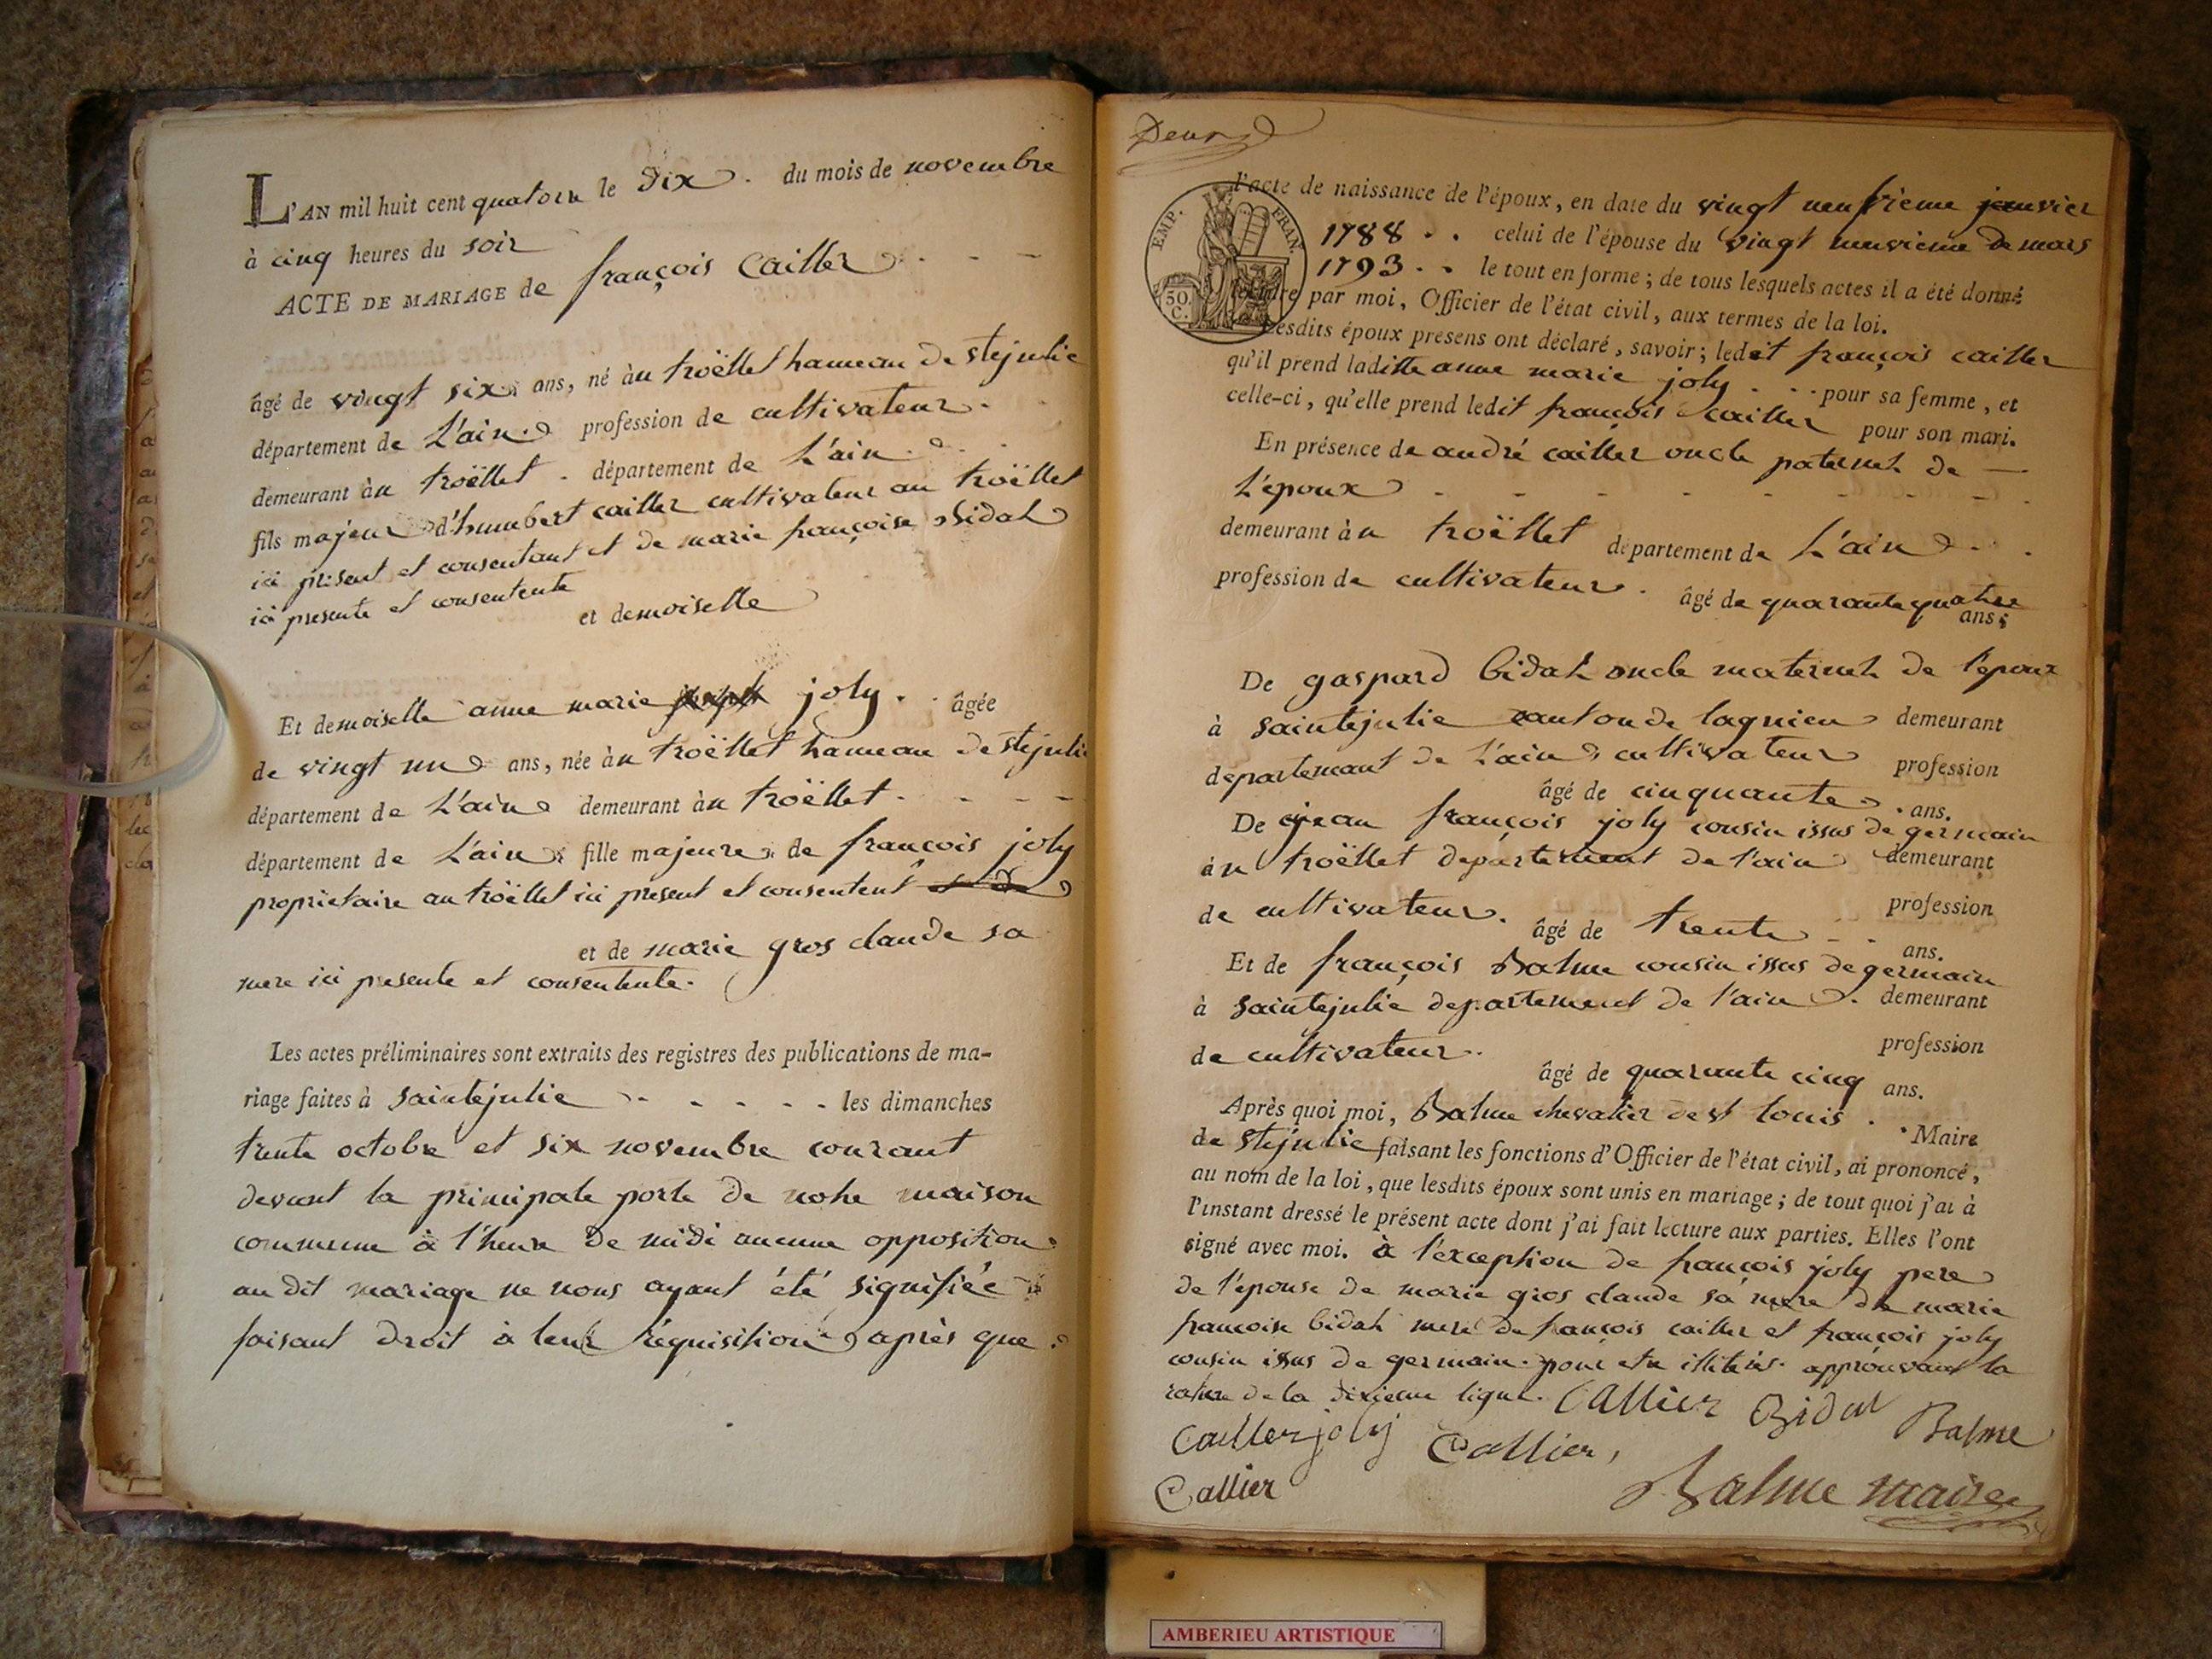 L'AN mil huit cent quatorze le dix du mois de novembre
à cinq heures du soir
ACTE DE MARIAGE de françois Cailler
âgé de vingt six ans, né au troëllet hameau de ste julie
département de L'ain profession de cultivateur
demeurant au troëllet département de L'ain
fils majeur d'humbert cailler cultivateur au troëllet
ici present et consentant et de marie françoise Bidal
ici presente et consentente
et demoiselle
Et demoiselle anne marie joly âgée
de vingt un ans, née au troëllet hameau de ste julie
département de L'ain demeurant au troëllet
département de L'ain fille majeure de françois joly
propriétaire au troëllet ici present et consentent et de
et de marie gros claude sa
mere ici presente et consentente.
Les actes préliminaires sont extraits des registres des publications de ma-
riage faites à saintejulie les dimanches
trente octobre et six novembre courant
devant la principale porte de notre maison
commune à l'heure de midi aucune opposition
au dit mariage ne nous ayant été signifiée
faisant droit à leur réquisition après que
l'acte de naissance de l'époux, en date du vingt neuvieme janvier
1788 celui de l'épouse du vingt neuvieme de mars
1793 le tout en forme; de tous lesquels actes il a été donné
lecture par moi, Officier de l'état civil, aux termes de la loi.
Lesdits époux presens ont déclaré, savoir; ledit françois cailler
qu'il prend laditte anne marie joly pour sa femme, et
celle-ci, qu'elle prend ledit françois cailler pour son mari.
En présence de andré cailler oncle paternel de
L'époux
demeurant au troëllet département de L'ain
profession de cultivateur. âgé de quarante quatre
ans;
De gaspard bidal oncle maternel de l'epoux
à saintejulie canton de lagnieu demeurant
departemant de L'ain cultivateur profession
âgé de cinquante ans.
De jean françois joly cousin issus de germain
au troëllet departement de l'ain demeurant
de cultivateur. profession
âgé de trente ans.
Et de françois Balme cousin issus de germain
à saintejulie departement de l'ain demeurant
de cultivateur profession
âgé de quarante cinq ans.
Après quoi moi, Balme chevalier de st louis Maire
de ste julie faisant les fonctions d'Officier de l'état civil, ai prononcé,
au nom de la loi, que lesdits époux sont unis en mariage; de tout quoi j'ai à
l'instant dressé le présent acte dont j'ai fait lecture aux parties. Elles l'ont
signé avec moi. à l'exception de françois joly pere
de l'épouse de marie gros claude sa mere de marie
francoise bidal mere de françois cailler et françois joly
cousin issus de germain pour etre illiterés. approuvant la
rature de la dixieme ligne. CAllier Bidal Balme
Cailler joly Callier,
Callier
Balme maire
EMP. FRAN.
50.
C.
AMBERIEU ARTISTIQUE